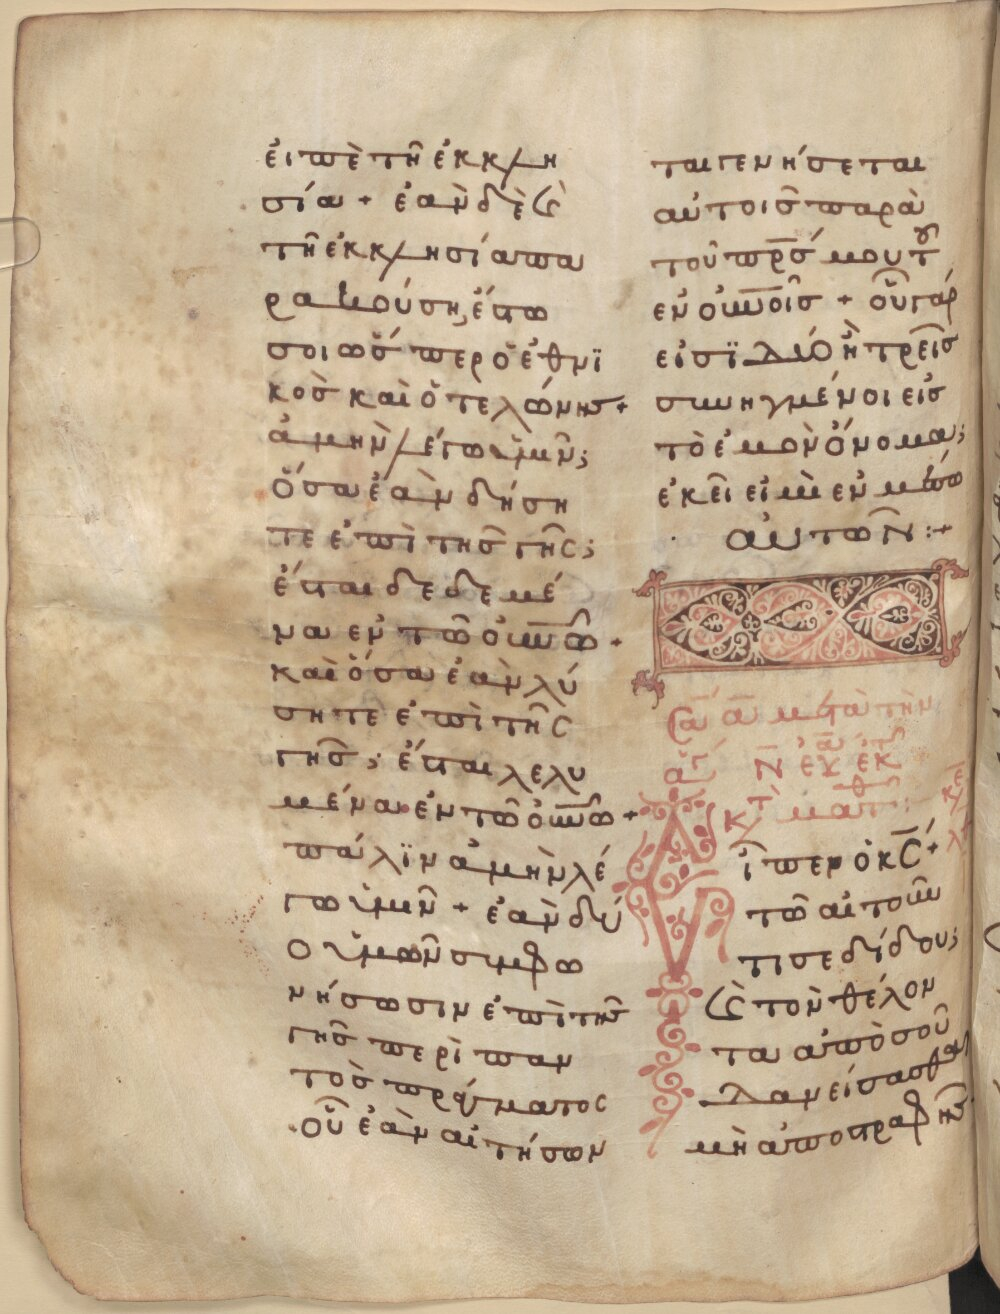 εἰπὲ τῆ ἐκκλη
σία + ἐὰν δὲ ϗ
τῆ ἐκκλησία πα
ρακούση, ἔστω
σοι ὥσπερ ὁ ἐθνϊ
κὸσ καὶ ὁ τελώνησ +
ἀμὴν λέγω ὑμῖν;
ὅσα ἐὰν δήση
τε ἐπὶ τῆσ γῆς;
ἔσται δεδεμέ
να εν τῶ οὐνῶ +
καὶ ὅσα ἐὰν λύ
σητε ἐπὶ τῆς
γῆσ; ἔσται λελυ
μένα ἐν τῶ οὐνῶ +
πάλϊν ἀμὴν λέ
γω ὑμῖν + ἐὰν δύ
ο ὑμῶν συμφω
νήσωσιν ἐπὶ τῆσ
γῆσ περὶ παν
τὸσ πράγματος
οὗ ἐὰν αἰτήσων
ται γενήσεται
αὐτοισ παρὰ
τοῦ πρσ μου τοῦ
ἐν οὐνοῖσ + οὗ γάρ
εἰσϊ δύο ἢ τρεῖσ
συνηγμένοι εἰσ
τὸ ἐμὸν ὄνομα;
ἐκεῖ εἰμὶ ἐν μέσω
αὐτῶν :+
Σα α μετὰ τὴν
Ν ἐκ
κτ ματθ :
Εἶπεν ὁ κς +
τῶ αἰτοῦν
τι σε δίδου;
ϗ τὸν θέλον
τα ἀπὸ σοῦ
δανείσασθαι
μὴ ἀποστραφῆσ